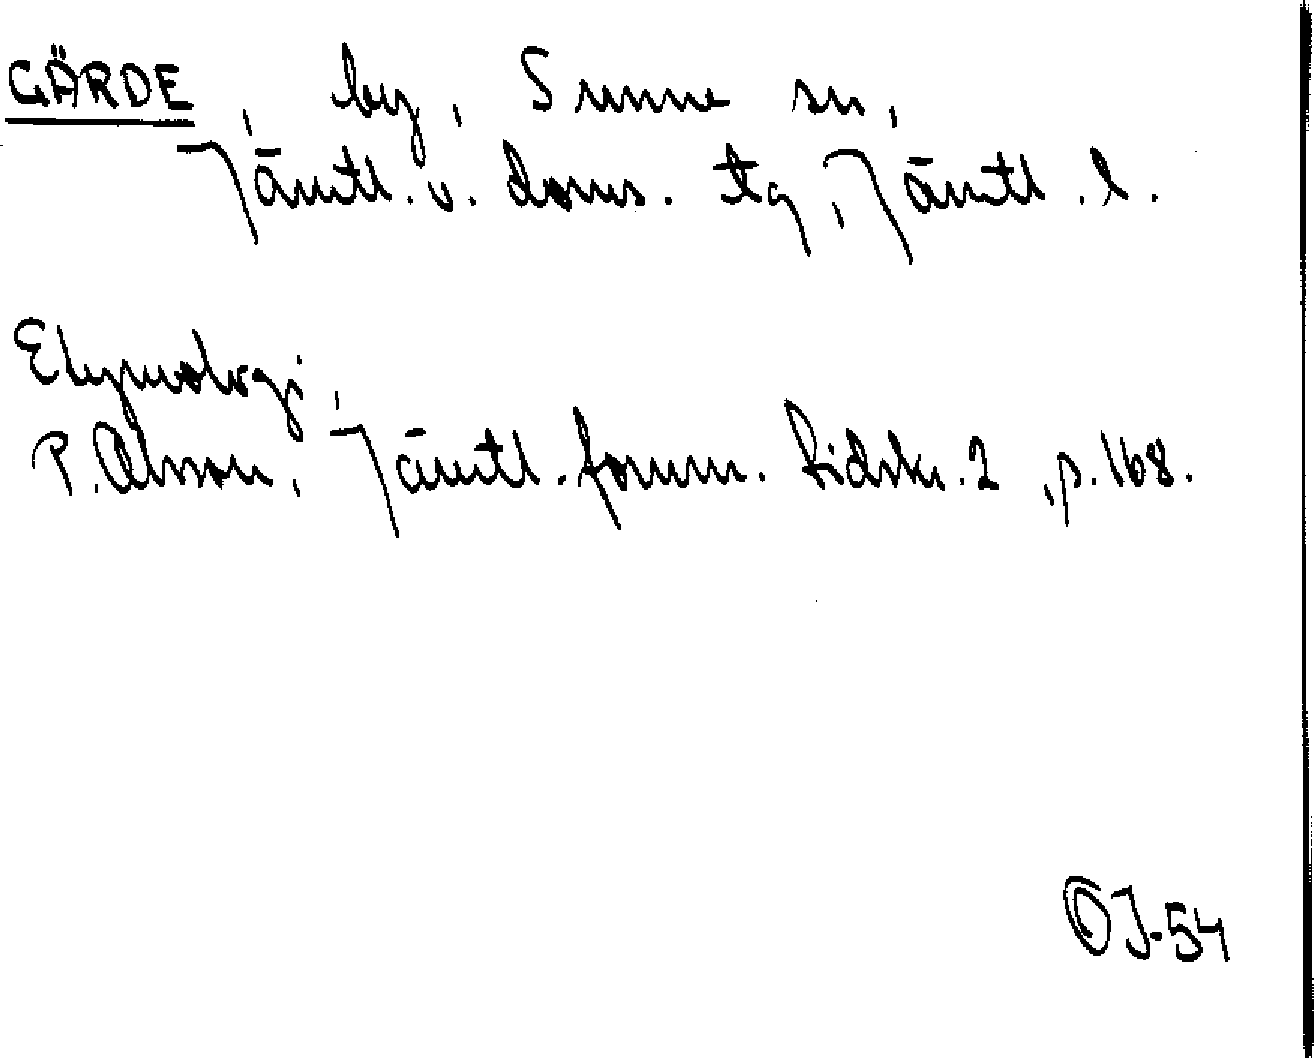 GÄRDE, by, Sunne sn,
Jämtl. v. doms. tg, Jämtl. l.
Etymologi,
P. Olsson, Jämtl. fornm. tidskr. 2, p. 168.
OJ-54